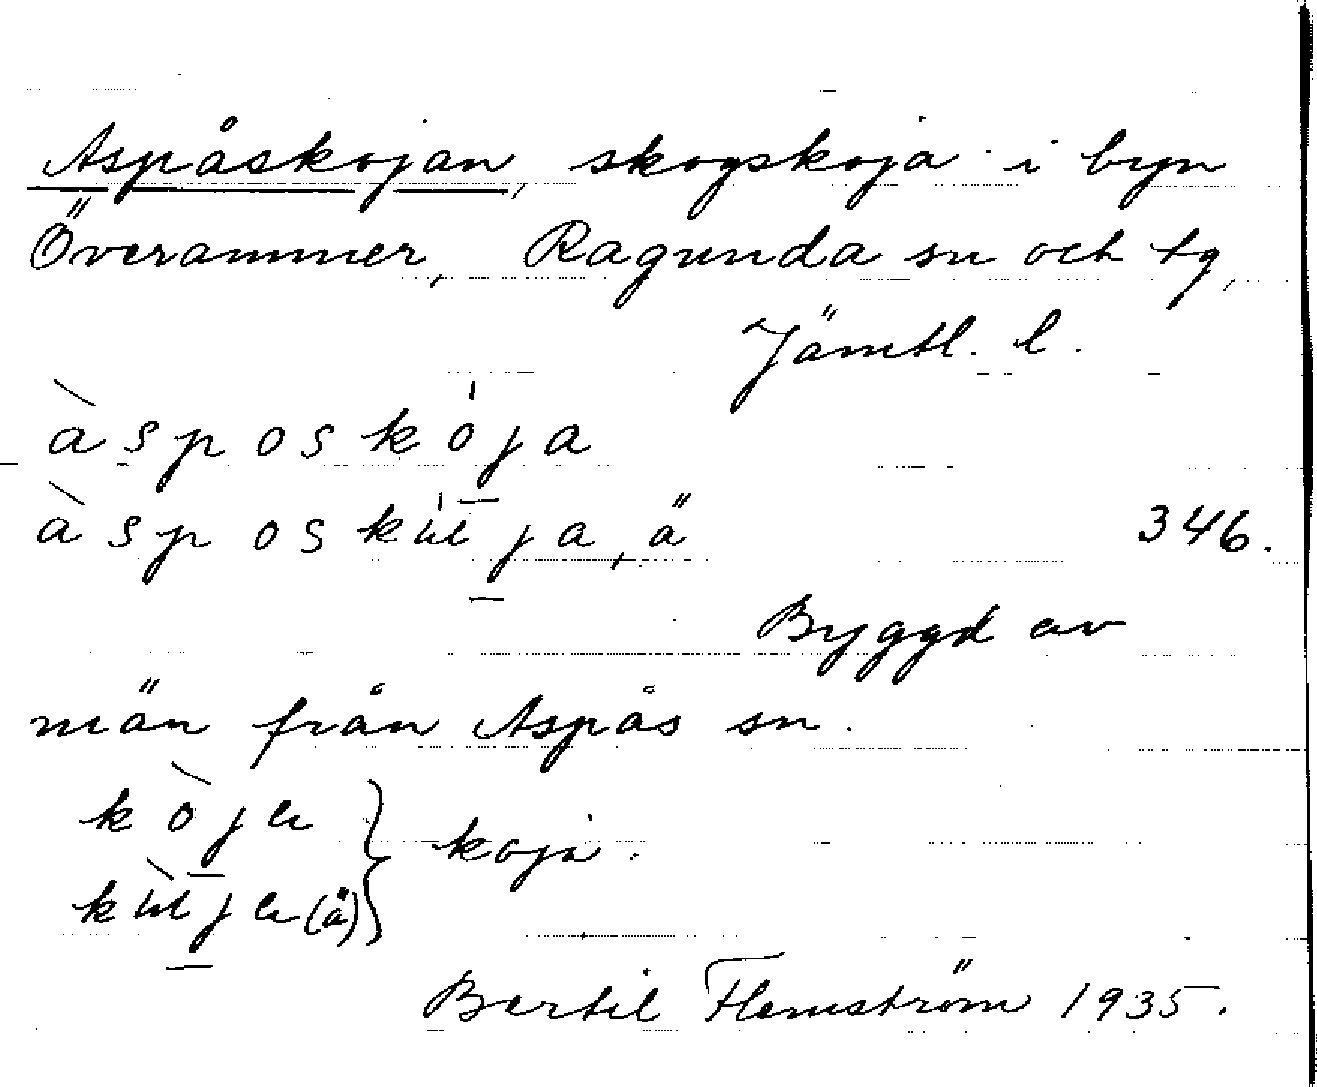 Aspåskojan, skogskoja i byn
Överammer, Ragunda sn och tg,
Jämtl. l.
àsposkója
àsposkúlja, ä 346.
Byggd av
män från Aspås sn.
kòje
kùlje (ä) } koja.
Bertil Flemström 1935.